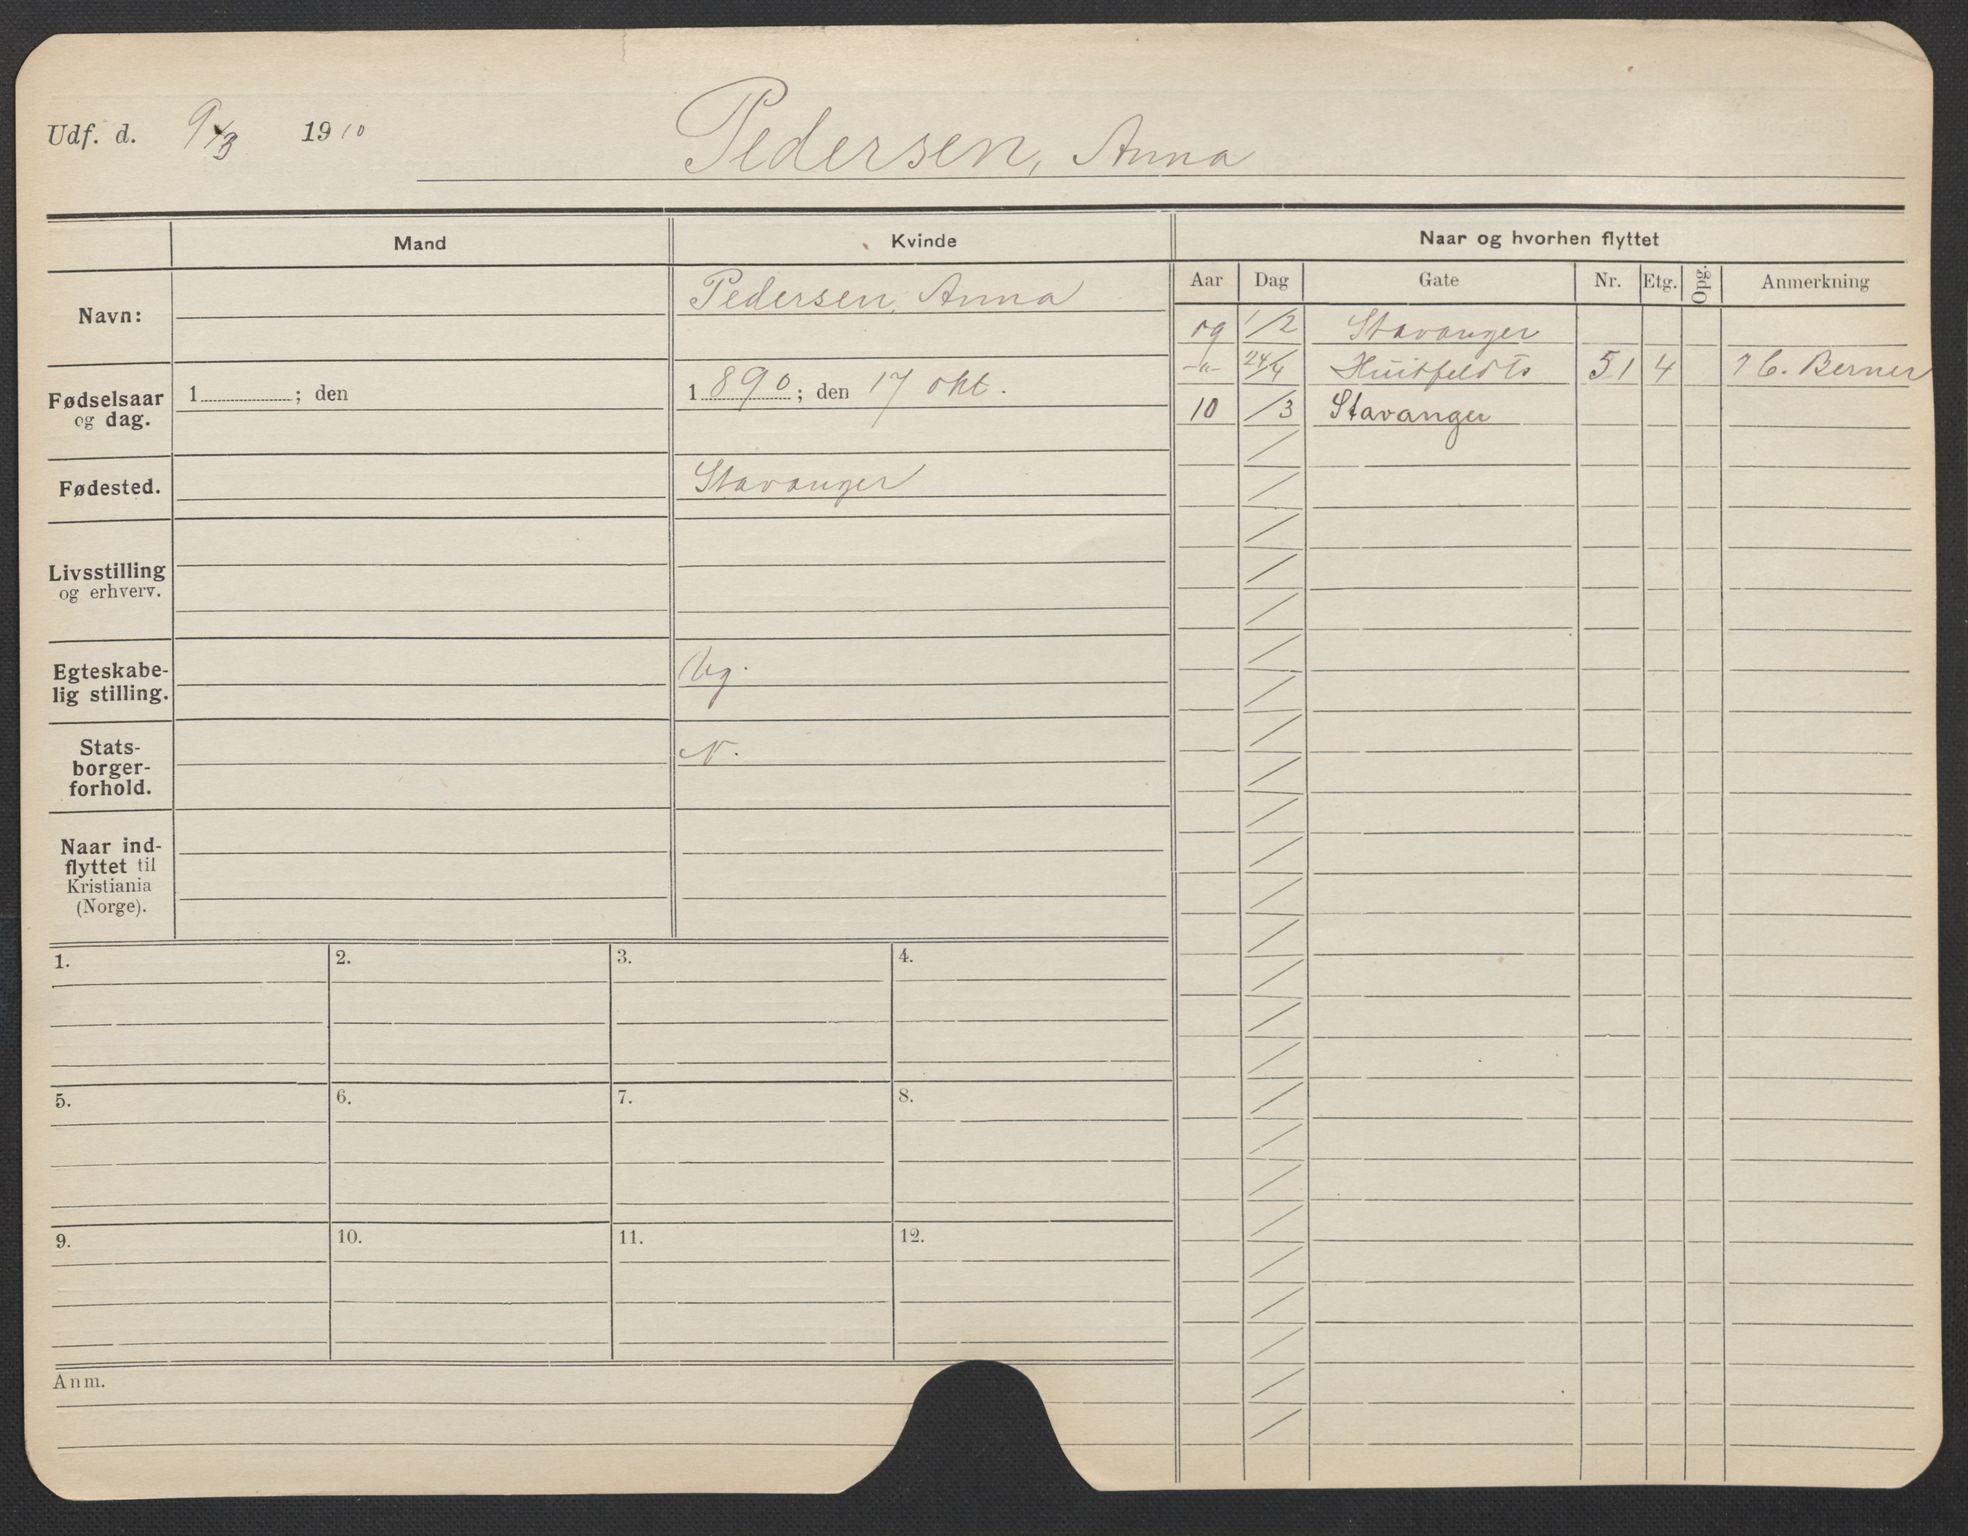 Udf. d. 9/3 1910 Pedersen, Anna
Mand Kvinde Naar og hvorhen flyttet
Aar Dag Gate Nr. Etg. Opg. Anmerkning
Navn: Pedersen, Anna
Fødselsaar og dag. 1 ; den 1890; den 17 okt.
Fødested. Stavanger
Livsstilling
og erhverv.
Egteskabe-
lig stilling. Ug.
Stats-
borger-
forhold. N.
Naar ind-
flyttet til
Kristiania
(Norge).
09 1/2 Stavanger
-"- 24/4 Huitfeldts 51 4 C. Berner
10 /3 Stavanger
1. 2. 3. 4.
5. 6. 7. 8.
9. 10. 11. 12.
Anm.